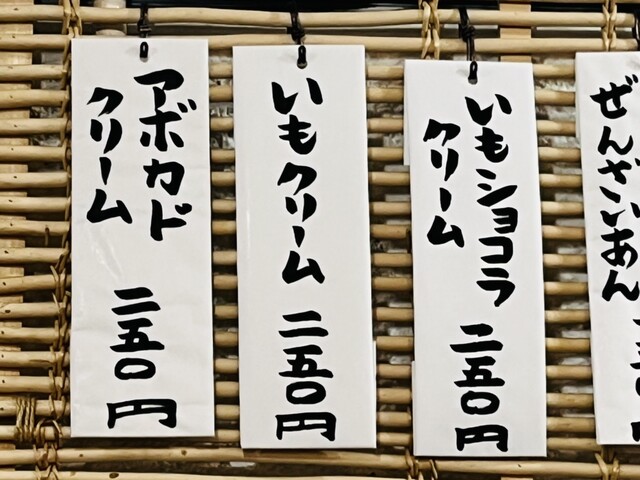 ぜんさいあん
いもショコラ
クリーム
二五〇円
いもクリーム 二五〇円
アボカド
クリーム
二五〇円